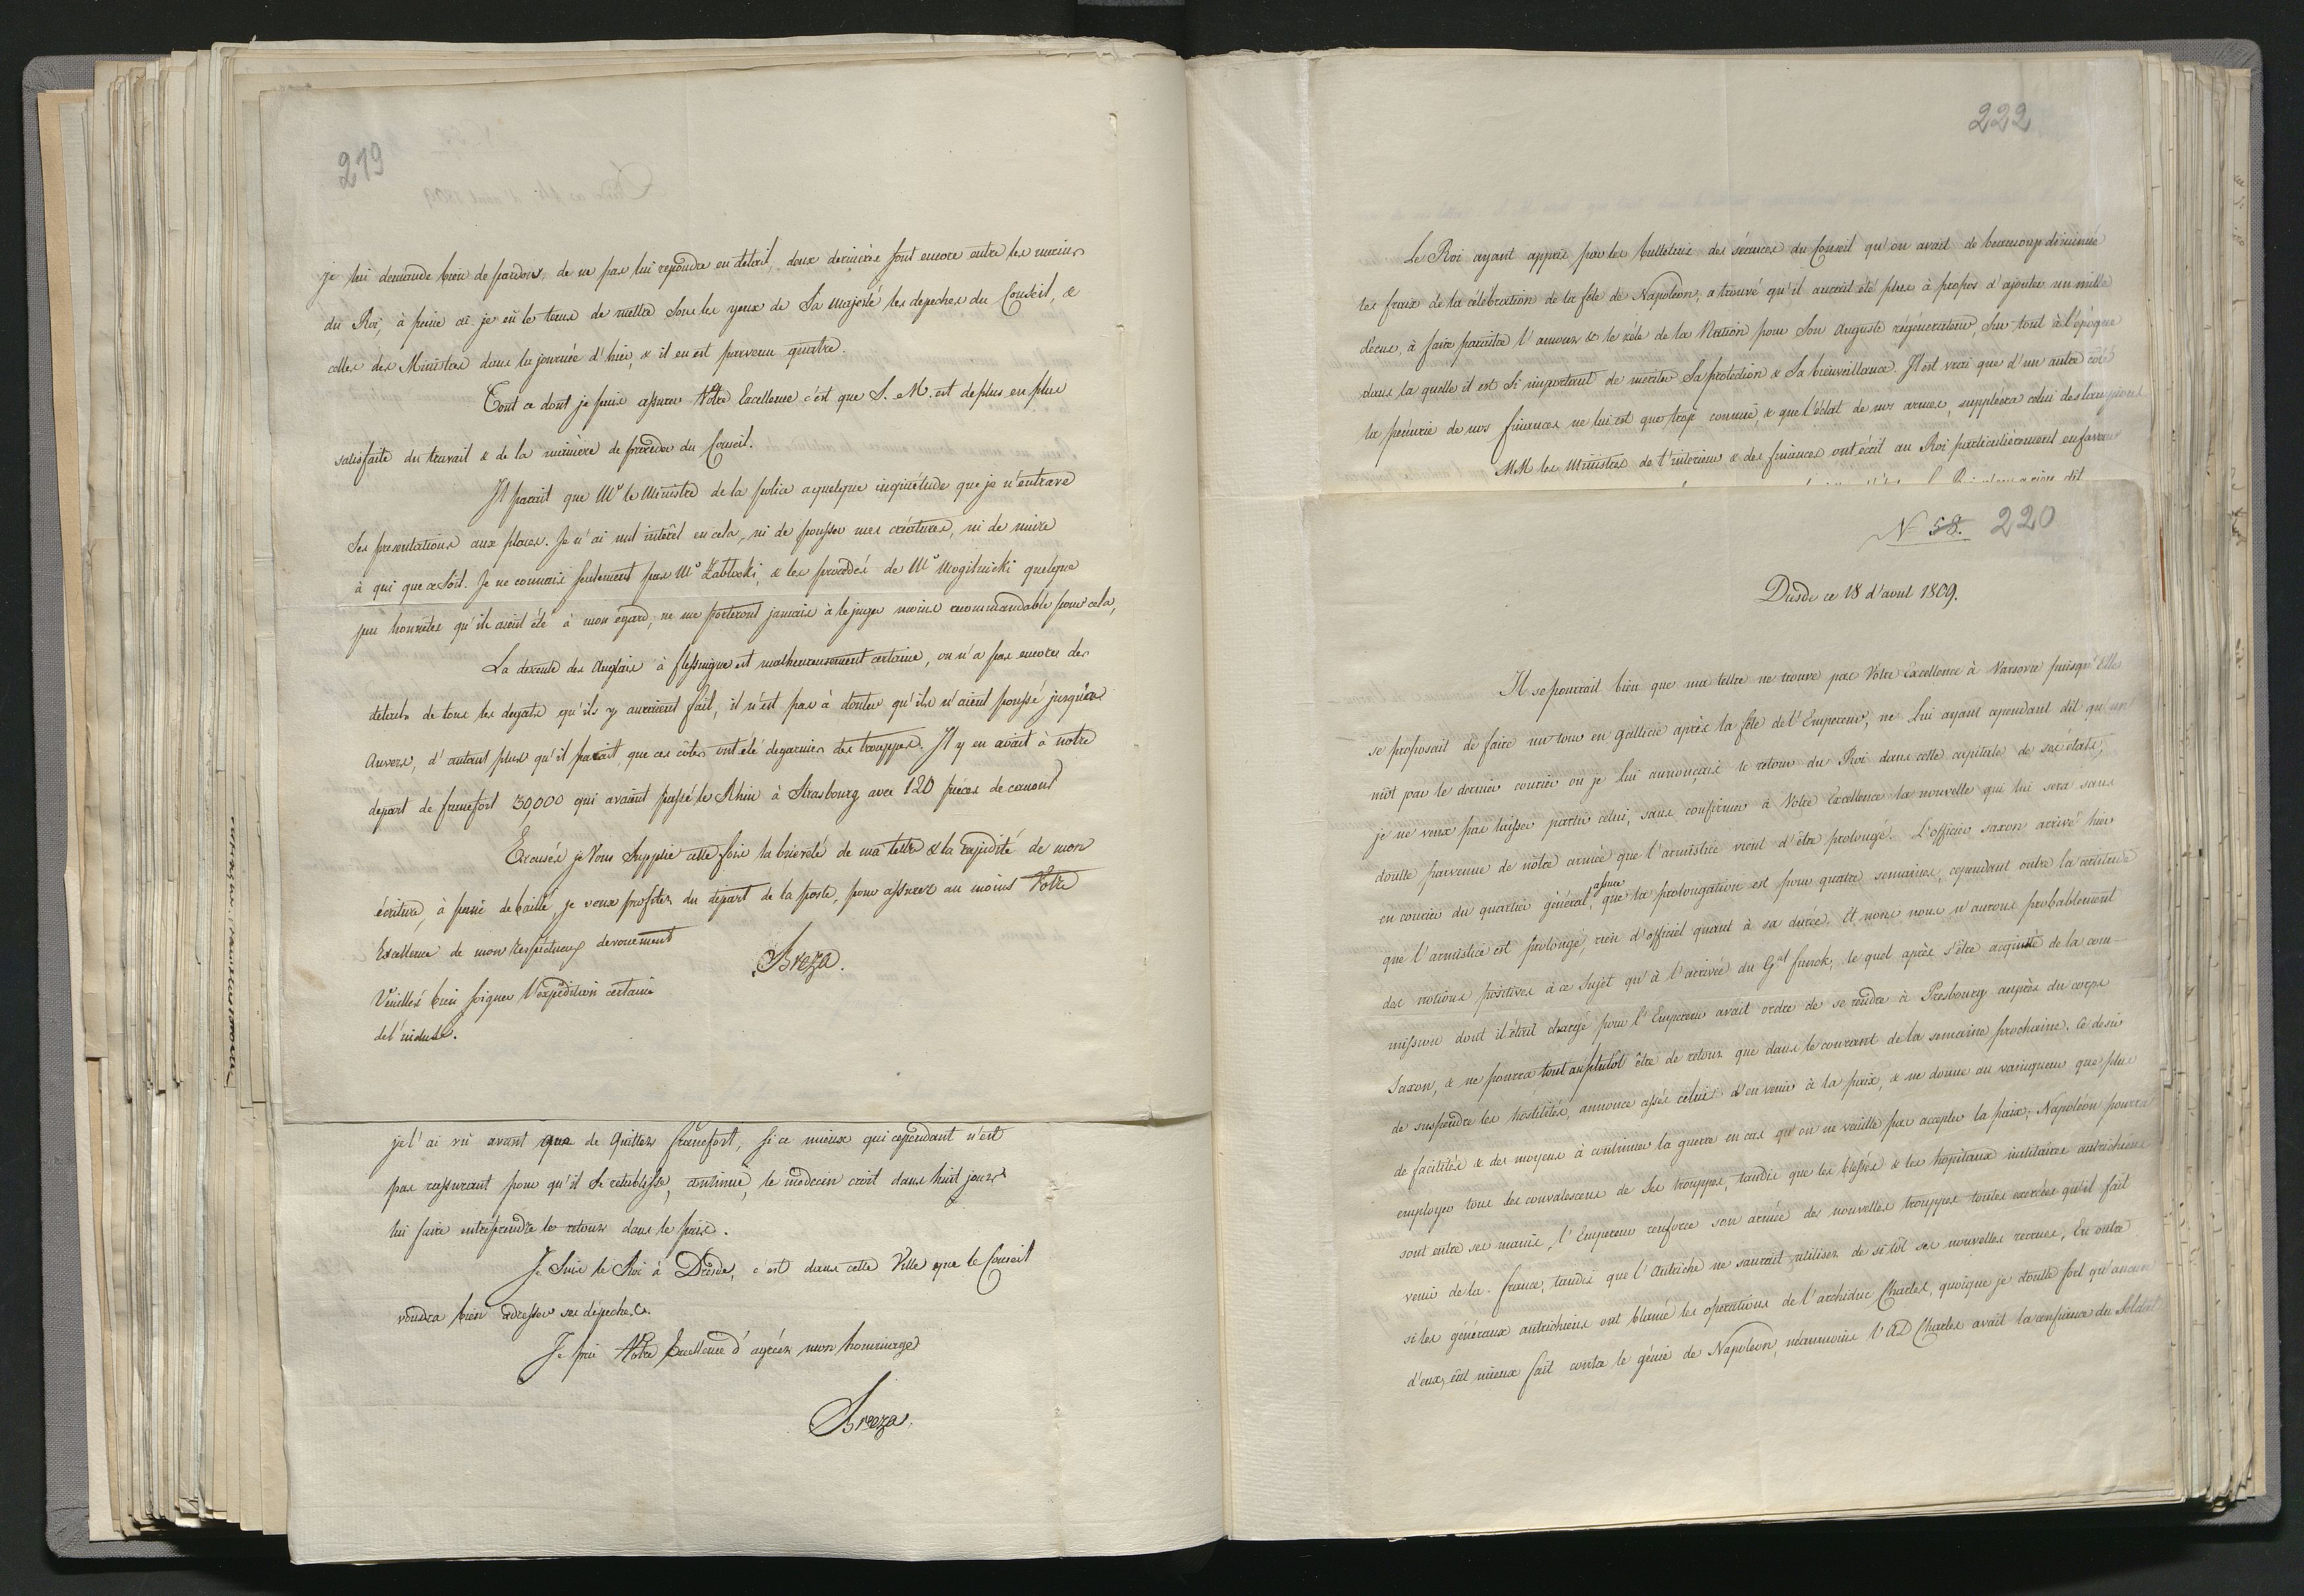 219
je lui demande bien de pardons, de ne pas lui repondre en detail, deux dernières sont encore entre les mains
du Roi, à peine ai-je eû le tems de mettre sous les yeux de Sa Majesté les depeches du Conseil, &
celles des Ministres dans la journée d'hier, & il en est parvenu quatre.
Tout ce dont je puis assurer Votre Excellence c'est que S. M. est de plus en plus
satisfaite du travail & de la manière de proceder du Conseil.
Il parait que Mr le Ministre de la police a quelque inquiétude que je n'entrave
ses presentations aux places. Je n'ai nul intérêt en cela, ni de pousser mes créatures, ni de nuire
à qui que ce soit. Je ne connais seulement pas Mr Zablocki, & les procédés de Mr Mogilnicki quelque
peu honnêtes qu'ils aient été à mon egard, ne me porteront jamais à le juger moins recommandable pour cela,
La descente des Anglais à flessingue est malheureusement certaine, on n'a pas encore des
details de tous les degats qu'ils y auraient fait, il n'est pas à douter qu'ils n'aient poussé jusqu'à
Anvers, d'autant plus qu'il parait, que ces côtes ont été degarnies des trouppes. Il y en avait à notre
depart de francfort 30,000 qui avaient passé le Rhin à Strasbourg avec 120 pièces de canons
Excusés je Vous Supplie cette fois la brieveté de ma lettre & la rapidité de mon
écriture, à peine debaillé, je veux profiter du départ de la poste, pour assurer au moins Votre
Excellence de mon respectueux devouement
Breza.
Veuillés bien soigner l'expedition certaine
de l'incluse.
je l'ai vû avant que de quitter francfort, si ce mieux qui cependant n'est
pas rassurant pour qu'il se retablisse, continuë, le medecin croit dans huit jours
lui faire entreprendre le retour dans le pais.
Je suis le Roi à Dresde, c'est dans cette Ville que le Conseil
voudra bien adresser ses dépeches.
Je prie Votre Excellence d'agréer mon hommage
Breza.
222
Le Roi ayant appris par les bulletins des séances du Conseil qu'on avait de beaucoup diminué
les fraix de la célébration de la fête de Napoléon, a trouvé qu'il aurait été plus à propos d'ajouter un mille
d'écus, à faire paraitre l'amour & le zéle de la Nation pour Son Auguste régénérateur, Sur-tout à l'époque
dans la quelle il est si important de meriter Sa protection & Sa bienveillance. Il est vrai que d'un autre côté
la penurie de nos finances ne lui est que trop connuë, & que l'éclat de nos armes, suppléera celui des lampions
MM les Ministres de l'interieur & des finances ont écrit au Roi particulièrement en faveur
N 58. 220
Dresde ce 18 d'aout 1809.
Il se pourrait bien que ma lettre ne trouve pas Votre Excellence à Varsovie puisqu'Elle
se proposait de faire un tour en Gallicie après la fête de l'Empereur, ne Lui ayant cependant dit qu'un
mot par le dernier courier où je Lui annonçais le retour du Roi dans cette capitale de ses états,
je ne veux pas laisser partir celui, sans confirmer à Votre Excellence la nouvelle qui lui sera sans
doutte parvenue de nôtre armée que l'armistice vient d'être prolongé. L'officier saxon arrivé hier
en courier du quartier général, assure que la prolongation est pour quatre semaines, cependant outre la certitude
que l'armistice est prolongé, rien d'officiel quant à sa durée. Et nous nous n'aurons probablement
des notions positives à ce Sujet qu'à l'arrivée du Gal funck, le quel après s'être acquitté de la com-
mission dont il était chargé pour l'Empereur avait ordre de se rendre à Presbourg auprès du corps
Saxon, & ne pourra tout au plutôt être de retour que dans le courant de la semaine prochaine. Ce desir
de suspendre les hostilités, annonce assés celui d'en venir à la paix, & ne donne au vainqueur que plus
de facilités & des moyens à continuer la guerre en cas qu'on ne veuille pas accepter la paix; Napoléon pourra
employer tous les convalescens de Ses trouppes, tandis que les blessés & les hopitaux militaires autrichiens
sont entre ses mains, l'Empereur renforce son armée des nouvelles trouppes toutes exercées qu'il fait
venir de la france, tandis que l'Autriche ne saurait utiliser de si tôt ses nouvelles recrues, En outre
si les généraux autrichiens ont blamé les operations de l'archiduc Charles, quoique je doutte fort qu'aucun
d'eux, eût mieux fait contre le génie de Napoléon, neanmoins l'AD Charles avait la confiance du Soldat